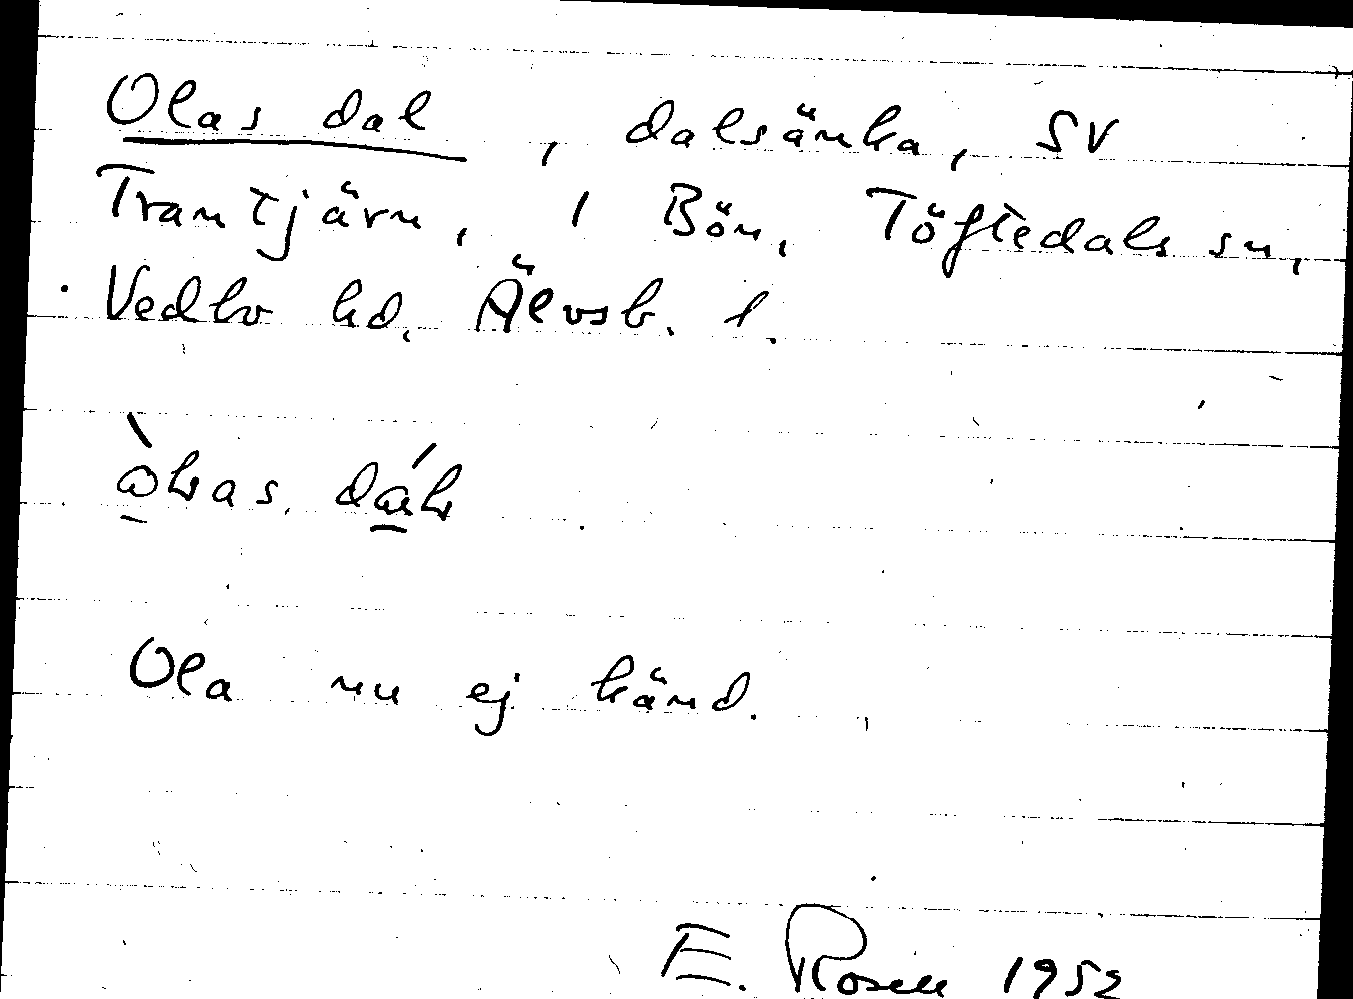 Olas dal, dalsänka, SV
Trantjärn, i Bön, Töftedals sn,
Vedbo hd, Älvsb. l.
Ola nu ej känd.
E. Rosell 1952